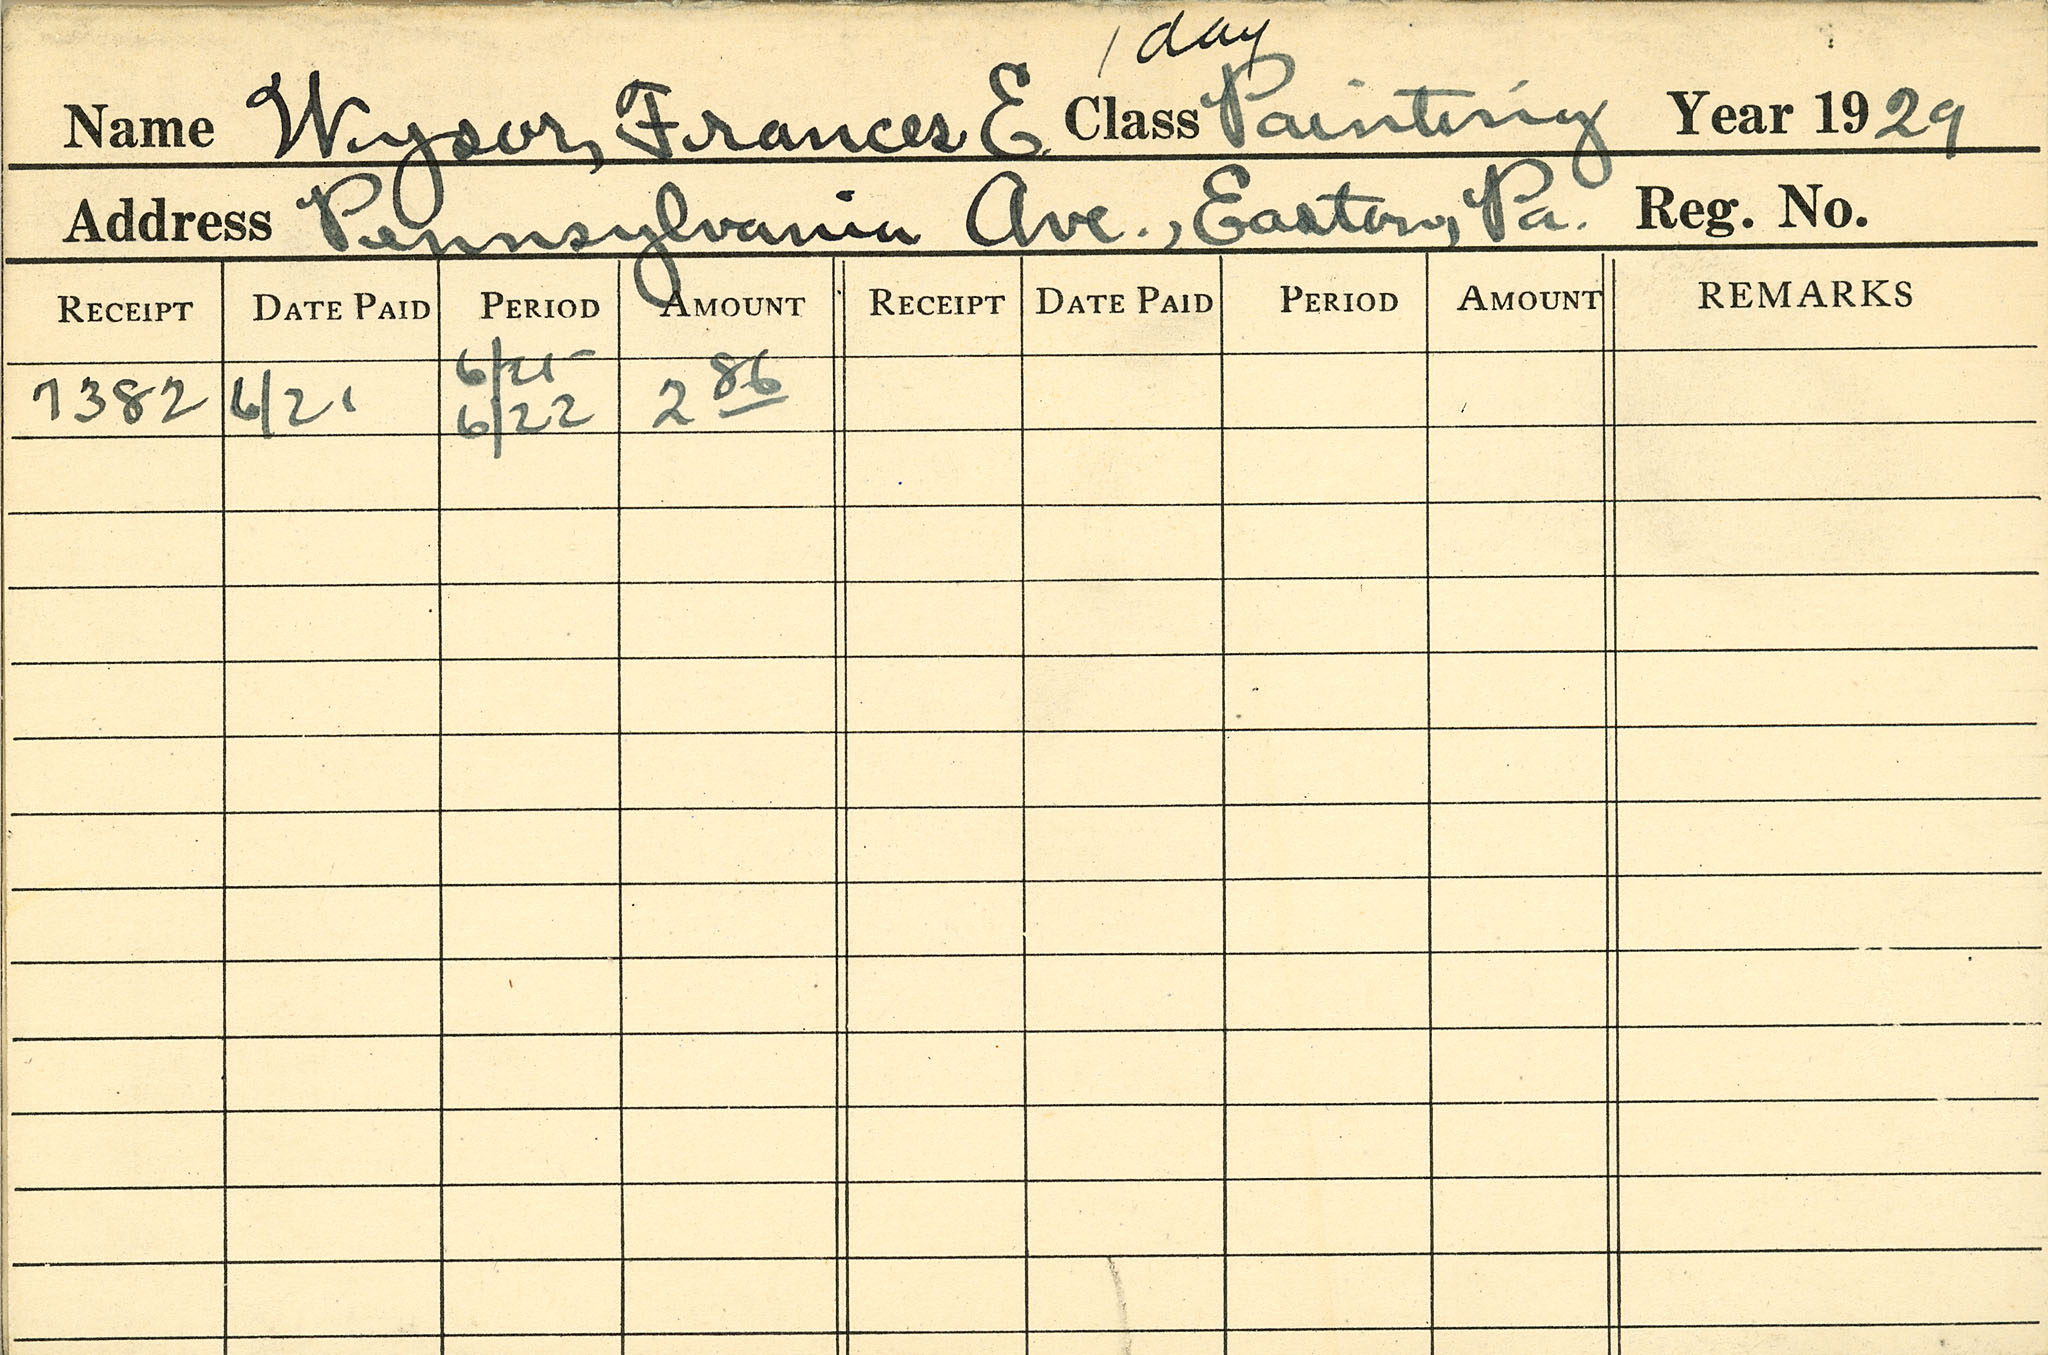 1 day
Name Wysor, Frances E. Class Painting Year 1929
Address Pennsylvania Ave., Easton, Pa. Reg. No.
RECEIPT DATE PAID PERIOD AMOUNT RECEIPT DATE PAID PERIOD AMOUNT REMARKS
6/21-
7382 6/21 6/22 2 86